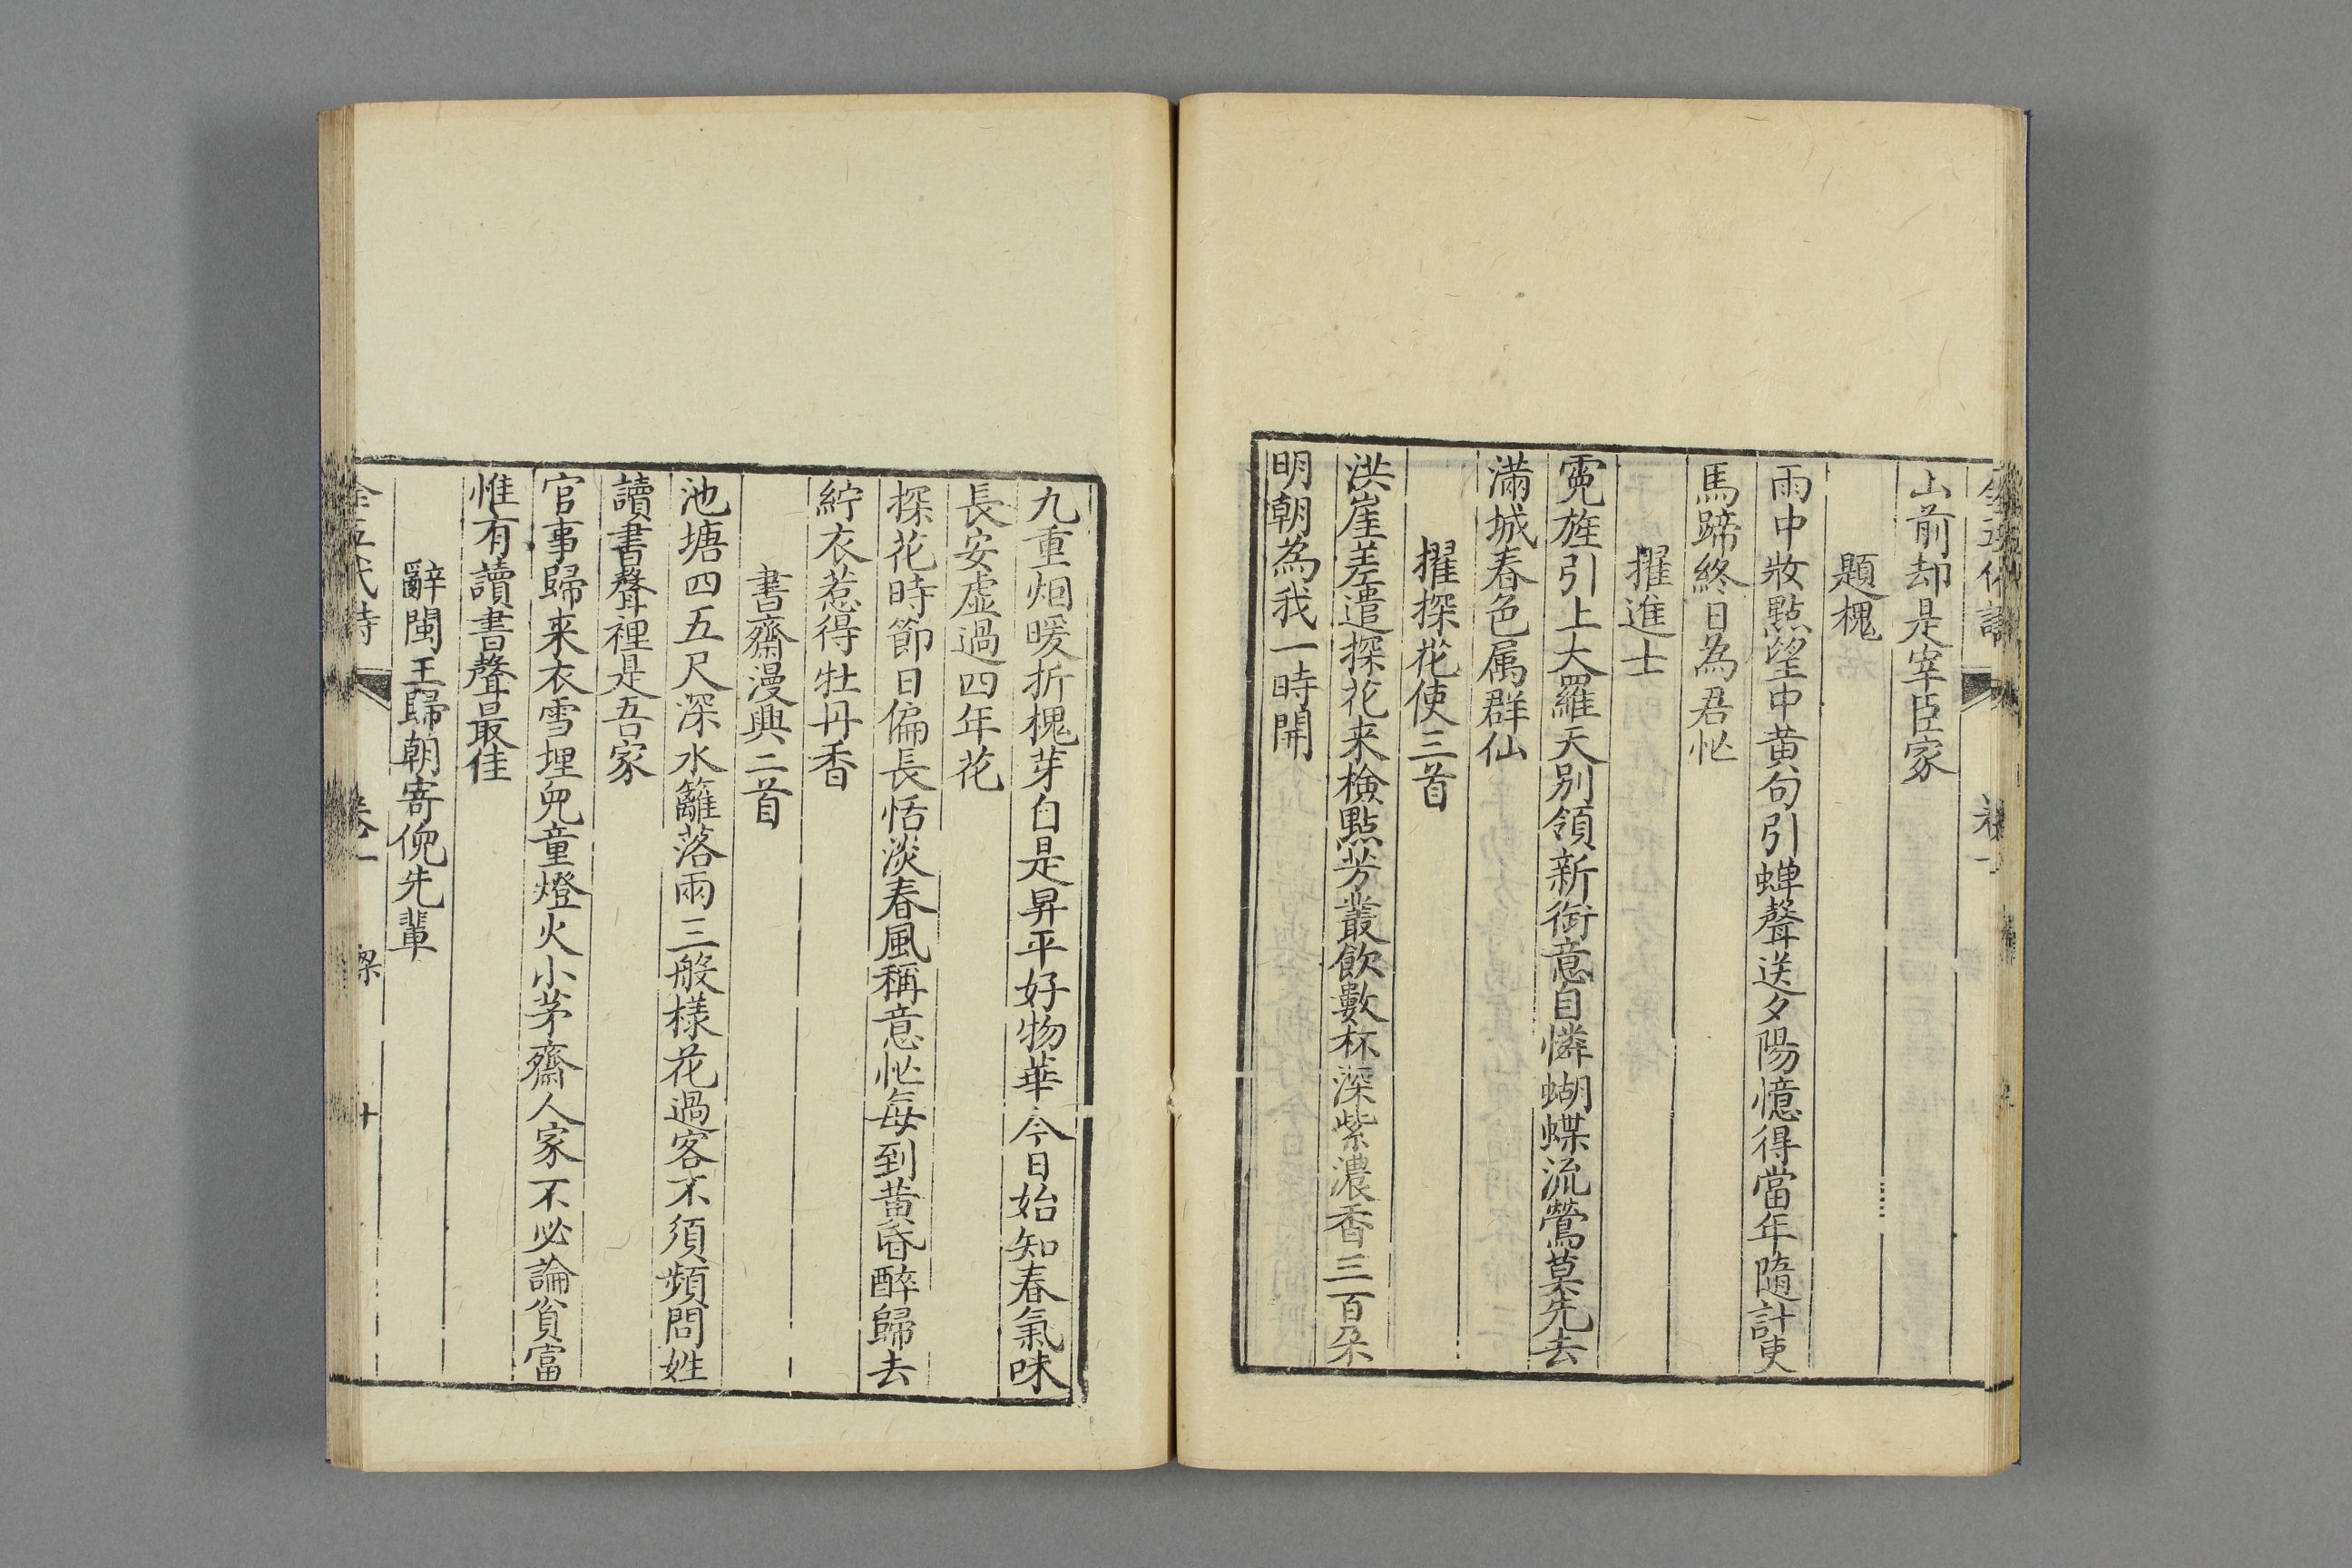 山前却是宰臣家
題槐
雨中妝點望中黃句引蟬聲送夕陽憶得當年隨計吏
馬蹄終日為君忙
擢進士
霓旌引上大羅天別領新銜意自憐蝴蝶流鶯莫先去
滿城春色属群仙
擢探花使三首
洪崖差遣探花来檢點芳叢飲數杯深紫濃香三百朵
明朝為我一時開
九重烟暖折槐芽自是昇平好物華今日始知春氣味
長安虛過四年花
探花時節日偏長恬淡春風稱意忙每到黃昏醉歸去
紵衣惹得牡丹香
書齋漫興二首
池塘四五尺深水籬落兩三般樣花過客不須頻問姓
讀書聲裡是吾家
官事歸来衣雪埋兒童燈火小茅齋人家不必論貧富
惟有讀書聲最佳
辭閩王歸朝寄倪先輩
全五代詩 卷一 梁 十